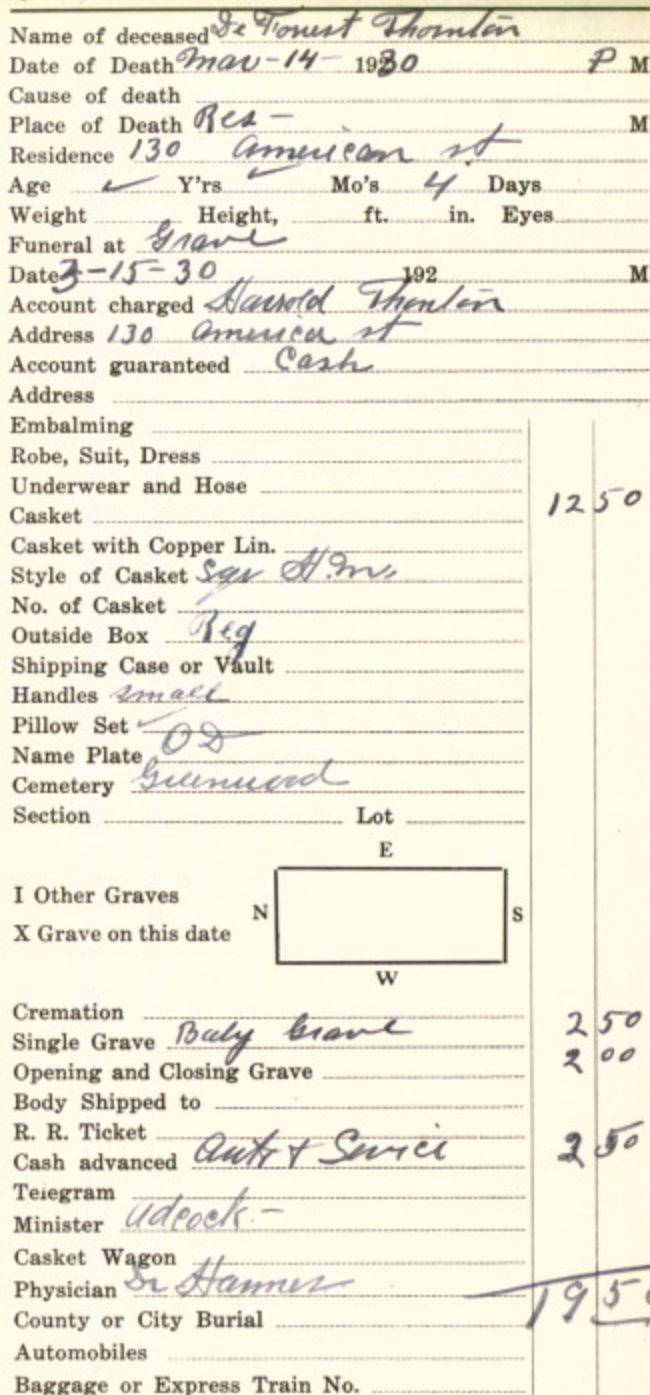 Name of deceased De Forrest Thornton
Date of Death Mar - 14 - 1930 P M
Cause of death
Place of Death Res - M
Residence 130 American st
Age ✓ Y'rs ✓ Mo's 4 Days
Weight Height, ft. in. Eyes
Funeral at Grave
Date 3-15-30 192 M
Account charged Harrold Thornton
Address 130 America st
Account guaranteed Cash
Address
Embalming
Robe, Suit, Dress
Underwear and Hose
Casket 12 50
Casket with Copper Lin.
Style of Casket Sqr
No. of Casket
Outside Box Reg
Shipping Case or Vault
Handles small
Pillow Set ✓
Name Plate OD
Cemetery Greenwood
Section Lot
E
I Other Graves
N S
X Grave on this date
W
Cremation
Single Grave Baby Grave 2 50
Opening and Closing Grave 2 00
Body Shipped to
R. R. Ticket
Cash advanced Auto + Service 2 50
Telegram
Minister Adcock -
Casket Wagon
Physician Dr
County or City Burial 19 50
Automobiles
Baggage or Express Train No.